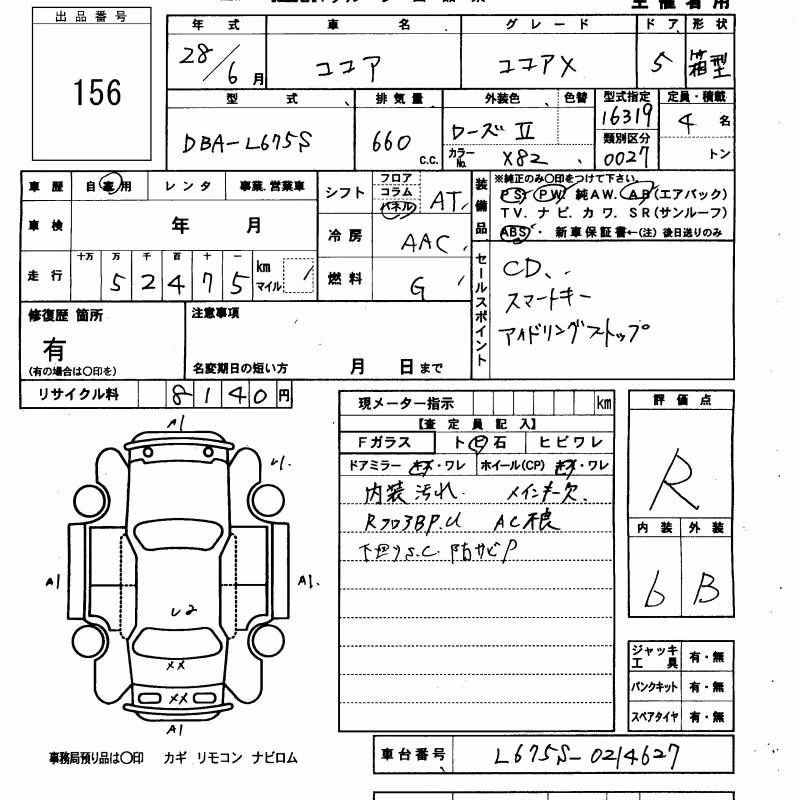 出品番号
156
年式 車名 グレード ドア 形状
28/6月 ココア ココアX 5 箱型
型式 排気量 外装色 色替 型式指定 定員・積載
DBA-L675S 660 c.c. ローズII 16319 4名
カラーNo. X82 類別区分 0027 トン
車歴 自家用 レンタ 事業.営業車
車検 年 月
走行 十万 万 千 百 十 一
5 2 4 7 5 km マイル
シフト フロア コラム パネル AT
冷房 AAC
燃料 G
装備品
※純正のみ〇印をつけて下さい。
PS. PW. 純AW. AB(エアバック)
TV. ナビ. カワ. SR(サンルーフ)
ABS・ 新車保証書←(注) 後日送りのみ
セールスポイント
CD、
スマートキー
アイドリングストップ
修復歴 箇所
有
(有の場合は〇印を)
注意事項
名変期日の短い方 月 日まで
リサイクル料 8 1 4 0 円
現メーター指示 km
【査定員記入】
Fガラス ト ヒ 石 ヒビワレ
ドアミラー キズ・ワレ ホイール(CP) キズ・ワレ
内装汚れ. メインキー欠.
Rフロア BP.U AC不良
下回りS.C 防サビP
評価点
R
内装 外装
6 B
ジャッキ工具 有・無
パンクキット 有・無
スペアタイヤ 有・無
A1
U1.
A1
A1.
U2
XX
XX
A1
事務局預り品は〇印 カギ リモコン ナビロム
車台番号 L675S-0214627